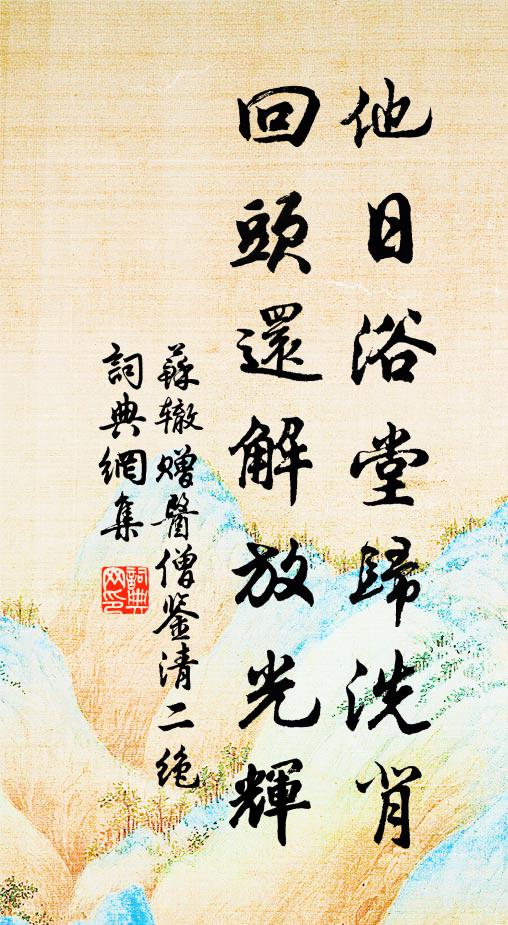 他日浴堂歸洗肖
回頭還解放光輝
蘇轍贈醫僧鑒清二絕
詞典網集
詞典网印